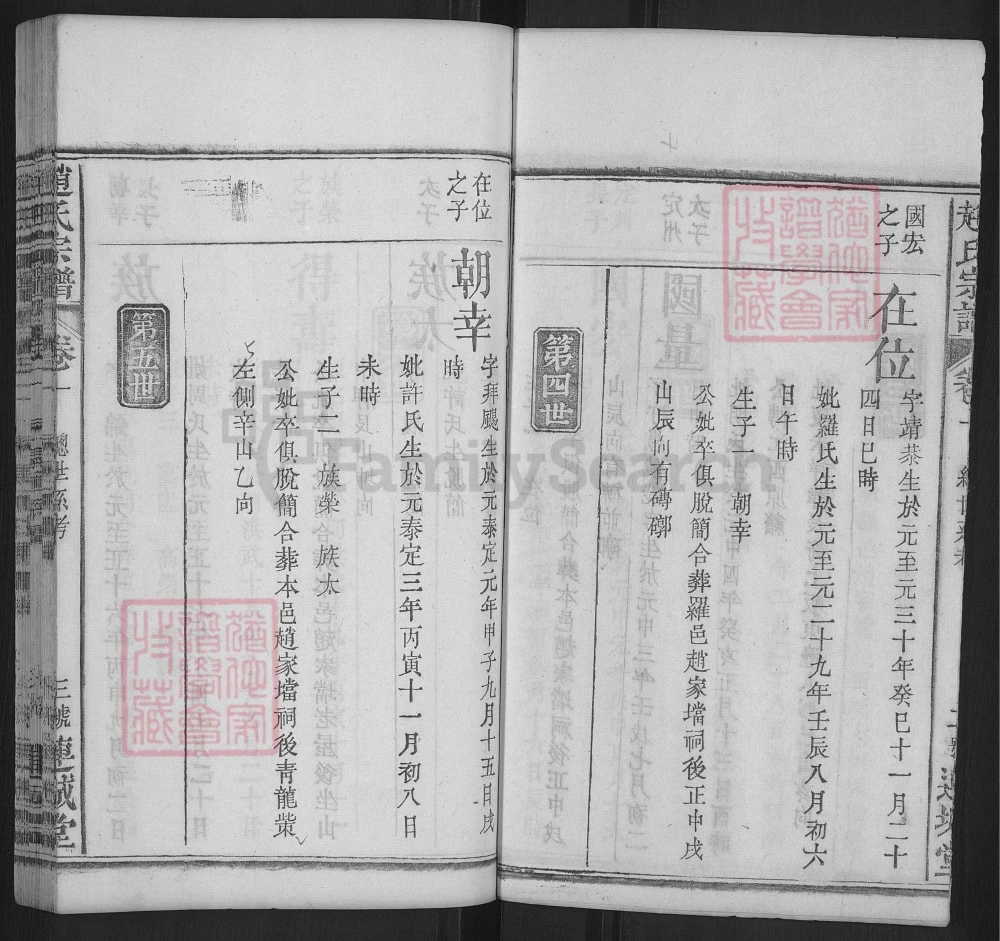 國宏
之子
在位
字靖恭生於元至元三十年癸巳十一月二十
四日巳時
妣羅氏生於元至元二十九年壬辰八月初六
日午時
生子一　朝幸
公妣卒俱脫簡合葬羅邑趙家壋祠後正中戌
山辰向有磚槨
第四世
在位
之子
朝幸
字拜颺生於元泰定元年甲子九月十五日戌
時
妣許氏生於元泰定三年丙寅十一月初八日
未時
生子二　族榮　族太
公妣卒俱脫簡合葬本邑趙家壋祠後青龍觜
左側辛山乙向
第五世
趙氏宗譜
卷一　總世系考
三號
連城堂
FamilySearch